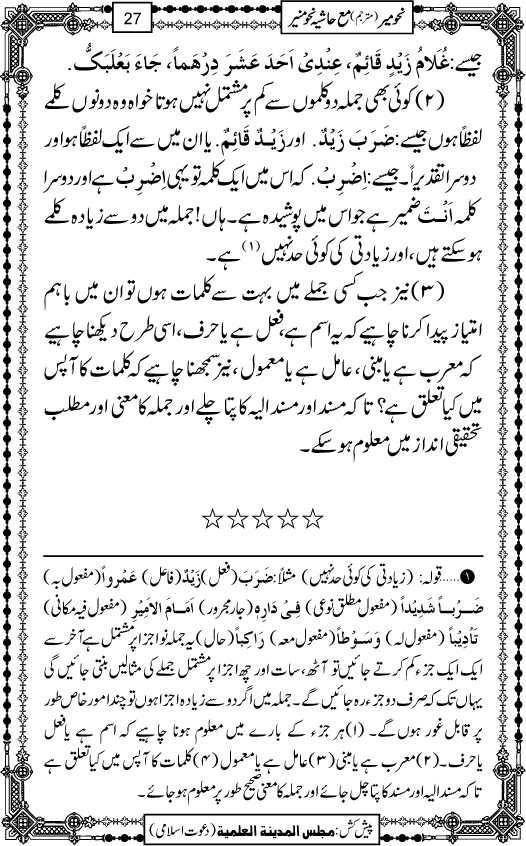 نحو میر (مترجم) مع حاشیہ نحو منیر
27
جیسے: غُلَامُ زَیْدٍ قَائِمٌ، عِنْدِیْ اَحَدَ عَشَرَ دِرْهَماً، جَاءَ بَعْلَبَکُّ.
(۲) کوئی بھی جملہ دو کلموں سے کم پر مشتمل نہیں ہوتا خواہ وہ دونوں کلمے
لفظاً ہوں جیسے: ضَرَبَ زَیْدٌ. اور زَیْدٌ قَائِمٌ. یا ان میں سے ایک لفظاً ہو اور
دوسرا تقدیراً۔ جیسے: اِضْرِبْ. کہ اس میں ایک کلمہ تو یہی اِضْرِبْ ہے اور دوسرا
کلمہ اَنْتَ ضمیر ہے جو اس میں پوشیدہ ہے۔ ہاں! جملہ میں دو سے زیادہ کلمے
ہو سکتے ہیں، اور زیادتی کی کوئی حد نہیں (۱) ہے۔
(۳) نیز جب کسی جملے میں بہت سے کلمات ہوں تو ان میں باہم
امتیاز پیدا کرنا چاہیے کہ یہ اسم ہے، فعل ہے یا حرف، اسی طرح دیکھنا چاہیے
کہ معرب ہے یا مبنی، عامل ہے یا معمول، نیز سمجھنا چاہیے کہ کلمات کا آپس
میں کیا تعلق ہے؟ تا کہ مسند اور مسند الیہ کا پتا چلے اور جملہ کا معنی اور مطلب
تحقیقی انداز میں معلوم ہو سکے۔
☆☆☆☆☆
❶.....قولہ: (زیادتی کی کوئی حد نہیں) مثلاً: ضَرَبَ (فعل) زَیْدٌ (فاعل) عَمْرواً (مفعول بہ)
ضَرْباً شَدِیْداً (مفعول مطلق نوعی) فِیْ دَارِهٖ (جار مجرور) اَمَامَ الْاَمِیْرِ (مفعول فیہ مکانی)
تَأدِیْباً (مفعول لہ) وَسَوْطاً (مفعول معہ) رَاکِباً (حال) یہ جملہ نو اجزا پر مشتمل ہے آخر سے
ایک ایک جزء کم کرتے جائیں تو آٹھ، سات اور چھ اجزا پر مشتمل جملے کی مثالیں بنتی جائیں گی
یہاں تک کہ صرف دو جزء رہ جائیں گے۔ جملہ میں اگر دو سے زیادہ اجزا ہوں تو چند امور خاص طور
پر قابل غور ہوں گے۔ (۱) ہر جزء کے بارے میں معلوم ہونا چاہیے کہ اسم ہے یا فعل
یا حرف۔ (۲) معرب ہے یا مبنی (۳) عامل ہے یا معمول (۴) کلمات کا آپس میں کیا تعلق ہے
تا کہ مسند الیہ اور مسند کا پتا چل جائے اور جملہ کا معنی صحیح طور پر معلوم ہو جائے۔
پیش کش: مجلس المدینة العلمیة (دعوت اسلامی)